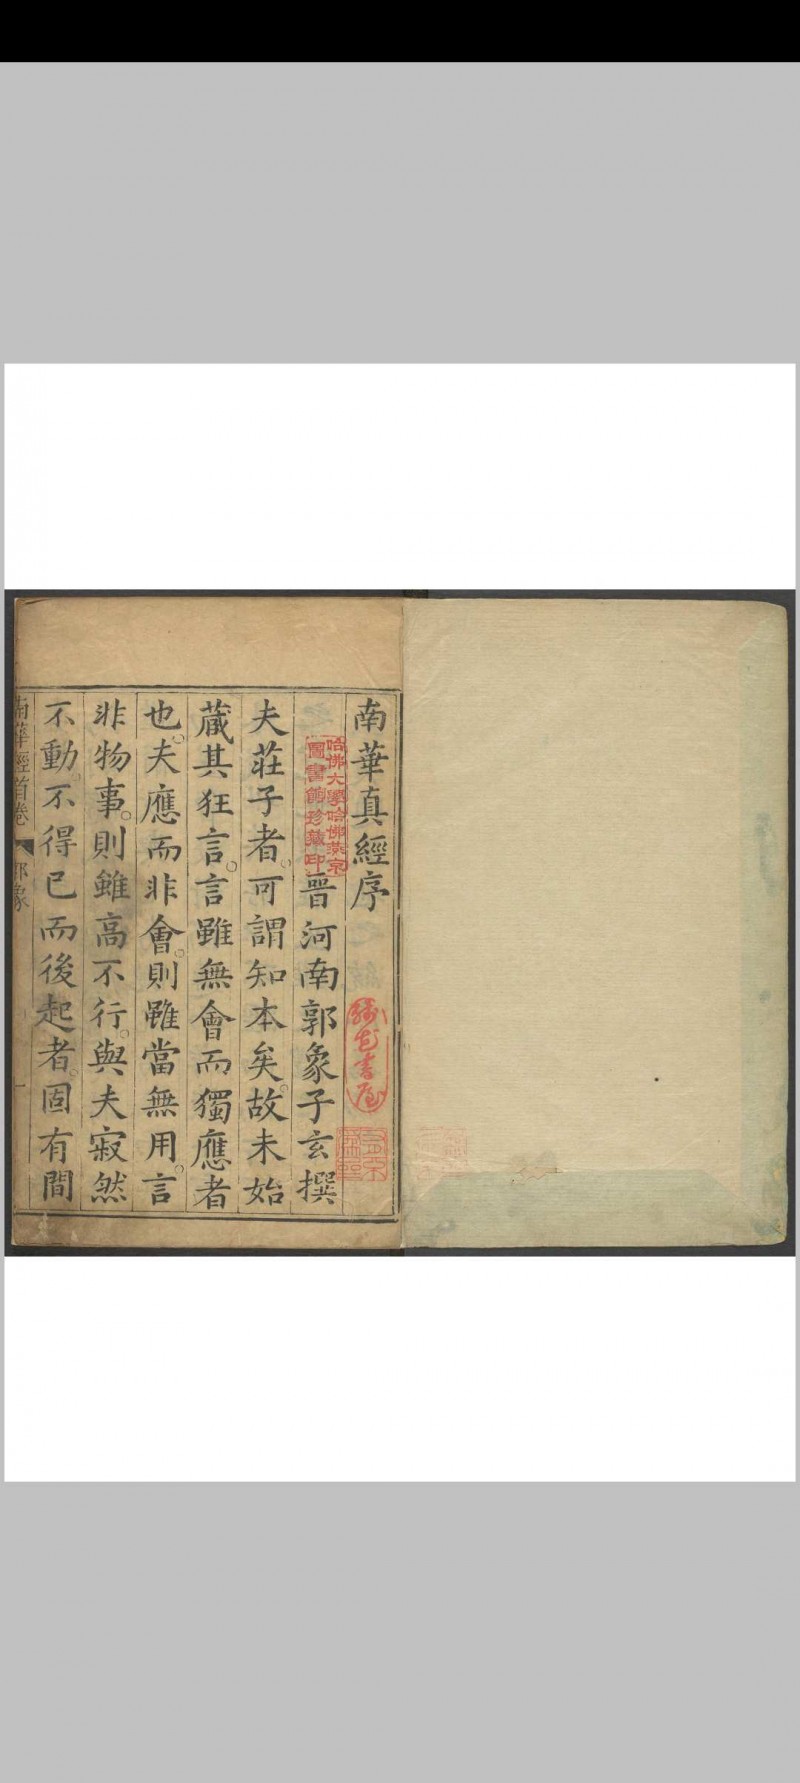 南華真經序
晉河南郭象子玄撰
夫莊子者可謂知本矣故未始
藏其狂言言雖無會而獨應者
也夫應而非會則雖當無用言
非物事則雖高不行與夫寂然
不動不得已而後起者固有間
南華經首卷 郭象 一
哈佛大學哈佛燕京
圖書館珍藏印